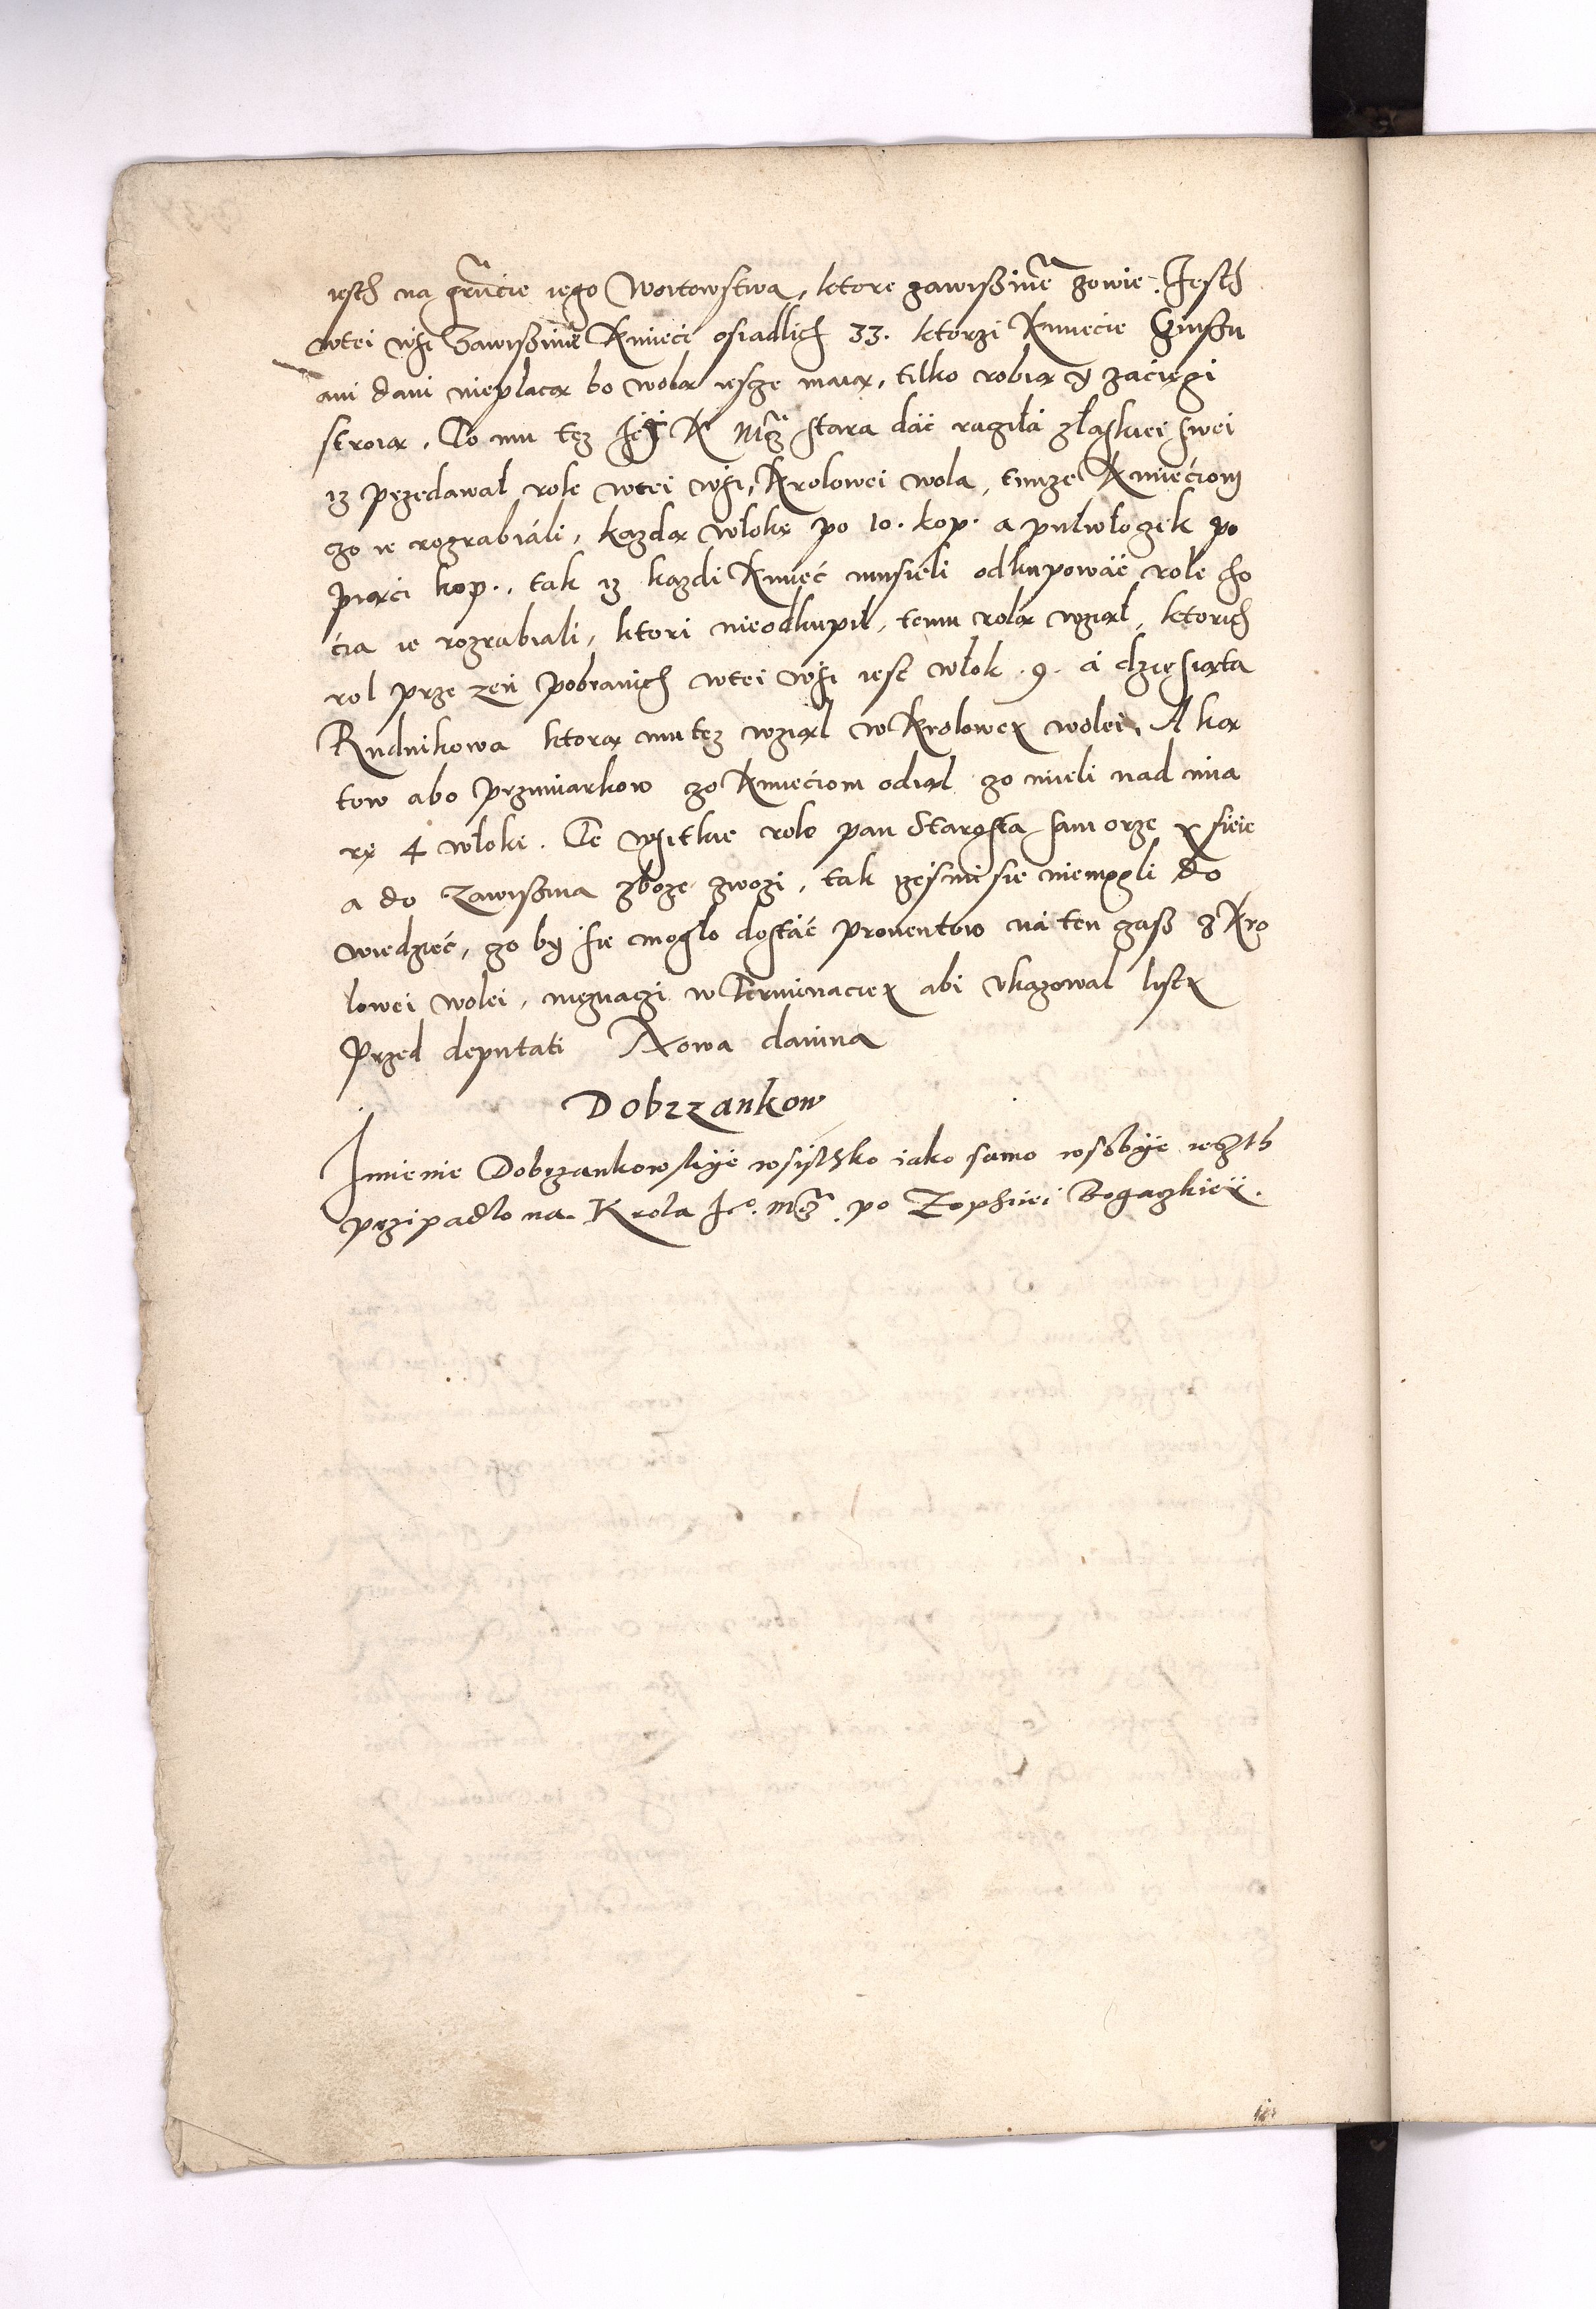 iesth na grũcie iego Woitowstwa, ktore zawißinẽ zowie. Iesth
wtei wsi Zawißinie Kmieci osiadlich 33. ktorzi Kmiecie Czinßu
ani dani nieplacą bo wolą iescze maią, tilko robią y zacięgi
stroią. Co mu tez Ie K Mcz stara dać raczila złaskiei swei
iz przedawal role wtei wsi, Krolowei wola, timze Kmieciom
czo ie rozrabiáli, kazdą wlokę po 10. kop. a pulwloczek po
piąci kop., tak iz kazdi Kmieć musieli odkupowáć role cho
ćia ie rozrabiali, ktori nieodkupil, temu rolą wziąl, ktorich
rol prze zeń pobranich wtei wsi iest wlok .9. á dziesiąta
Rudnikowa ktorą mu tez wziąl w Krolowey wolei. A ką
tow abo przimiarkow czo Kmieciom odiąl czo mieli nad mia
rę 4 wloki. Te wsitkie role pan Starosta sam orze y sieie
a do Zawißina zboze zwozi, tak zesmi sie niemogli do
wiedzieć, czo by sie moglo dostáć proventow ná ten czaß z Kro
lowei wolei, nieznaczi w Terminaciey abi ukazowal listy
Przed deputati Nowa danina
Dobrzankow
Imienie Dobrzankowskye wsyistko iako samo wsobye ieszth
przipadlo na Krola Ie°. mcz. po Zophiei Bogaczkiey.